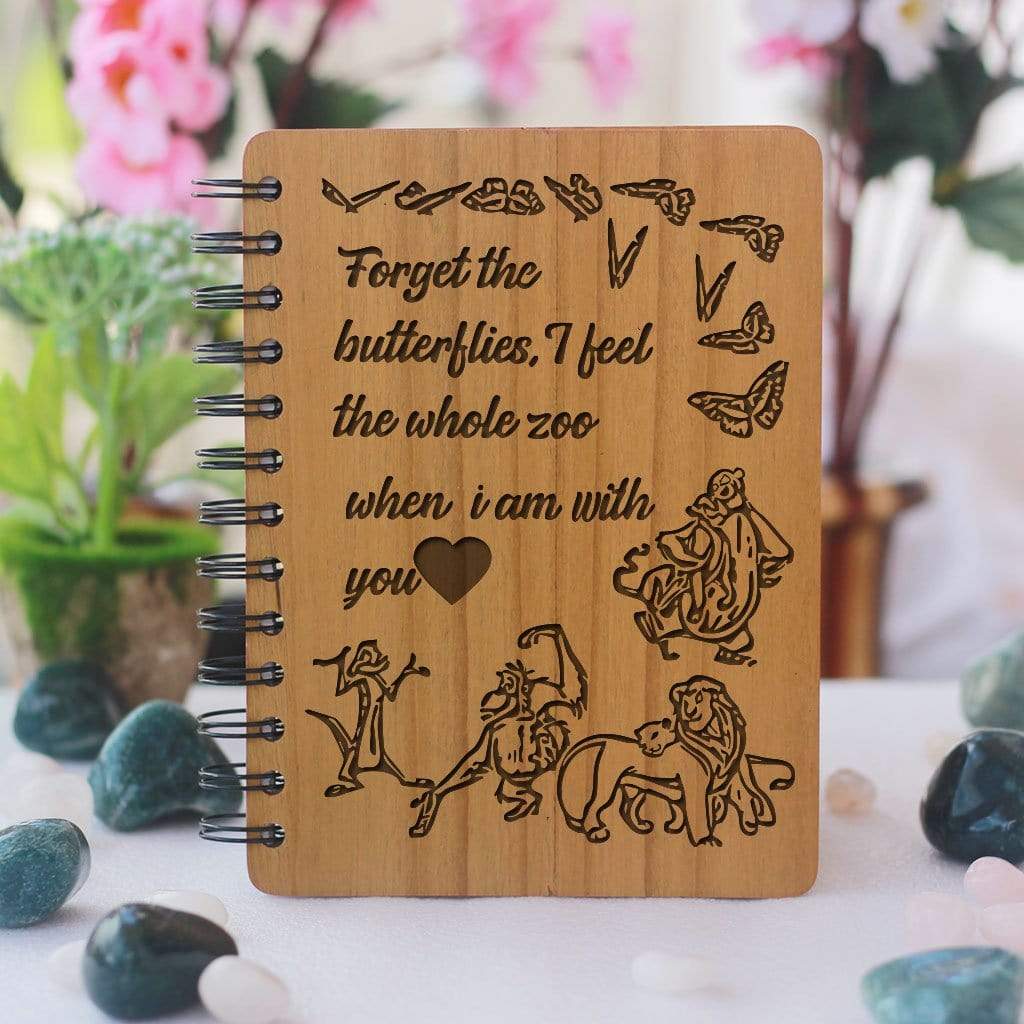 Forget the
butterflies, I feel
the whole zoo
when i am with
you